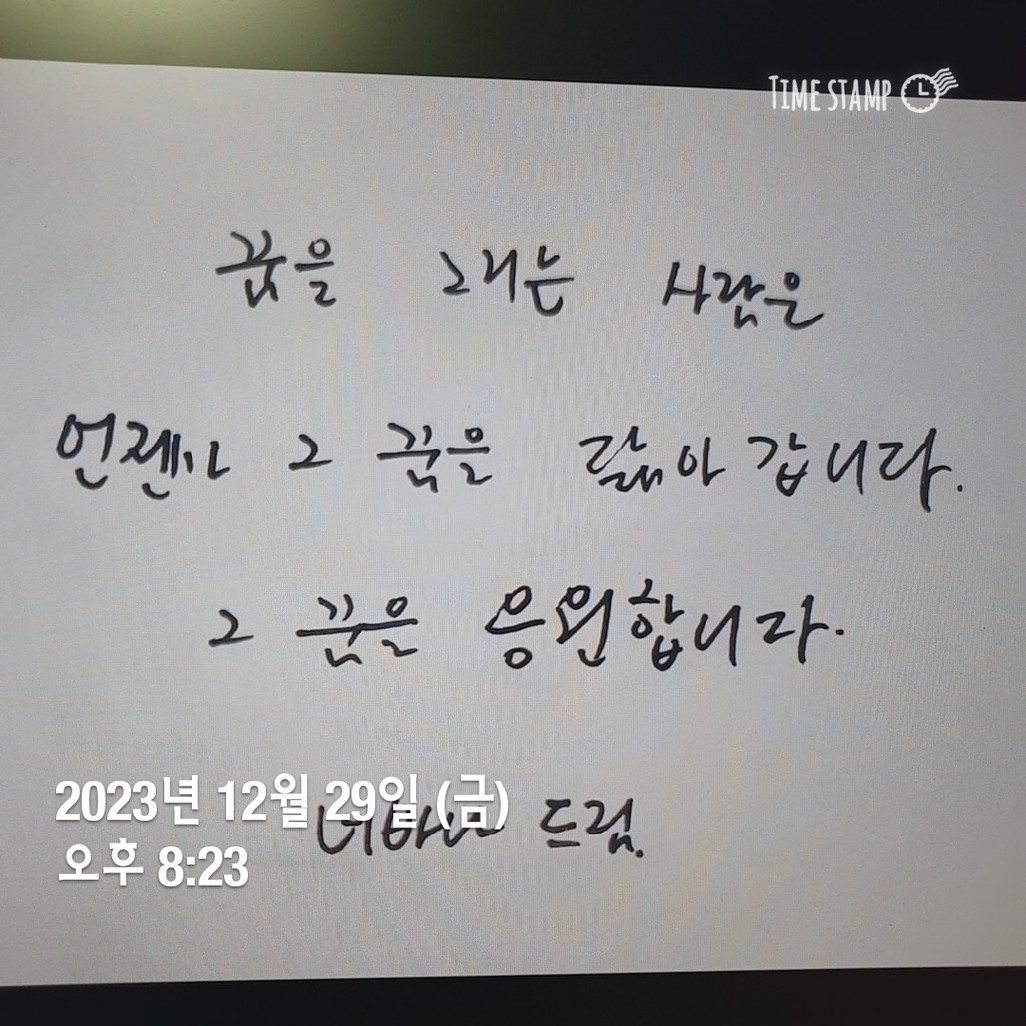 TIME STAMP
꿈을 그리는 사람은
언젠가 그 꿈을 닮아 갑니다.
그 꿈을 응원합니다.
2023년 12월 29일 (금)
드림.
오후 8:23